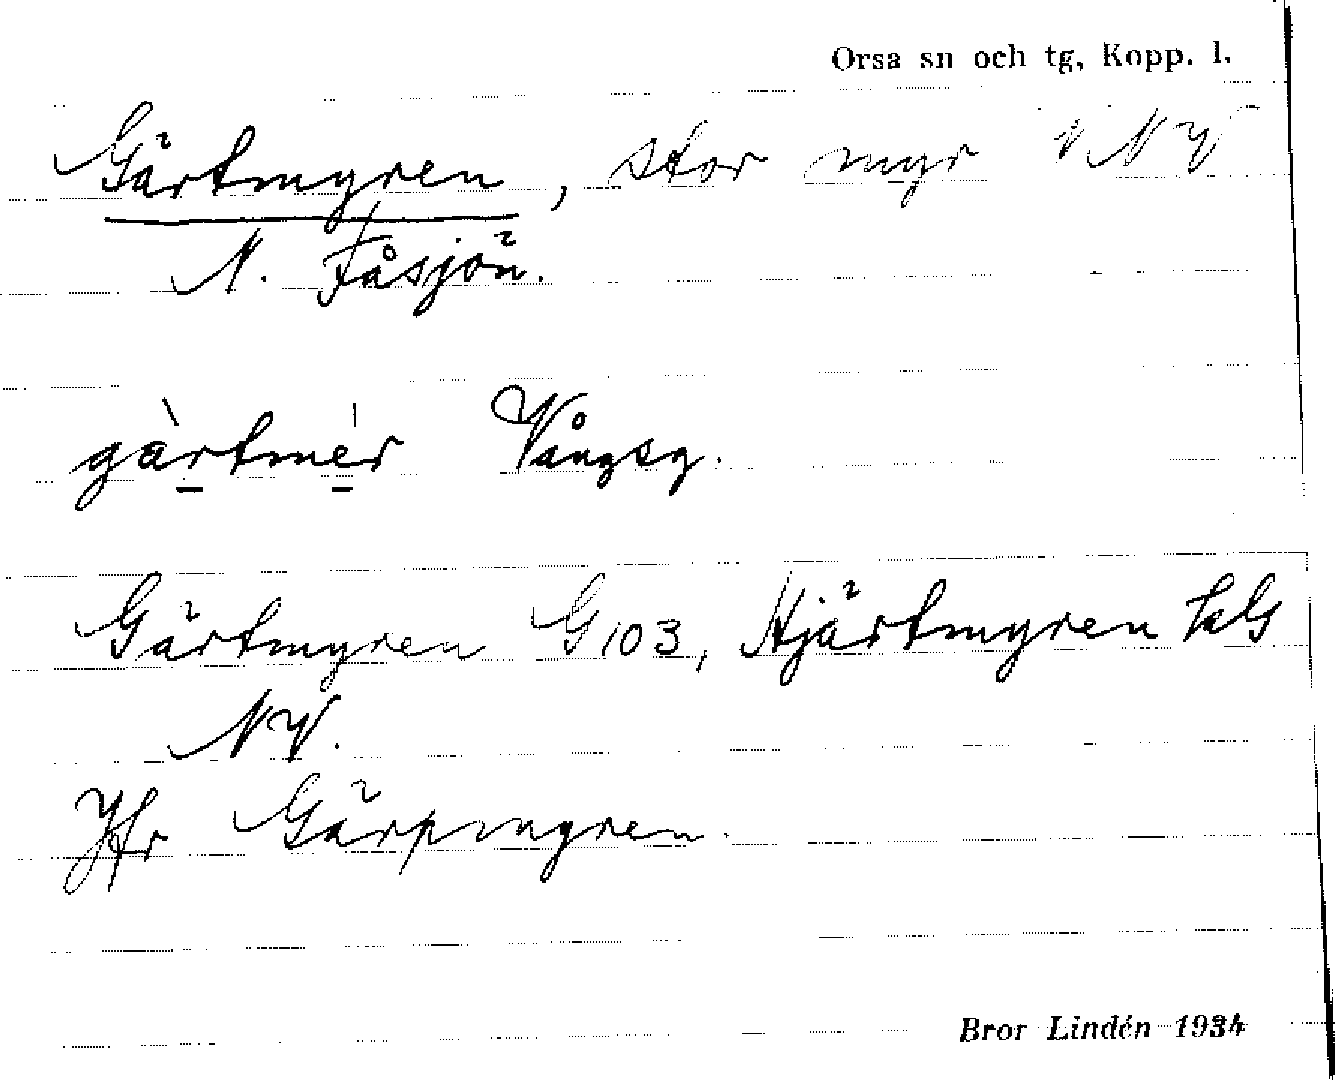 Orsa sn och tg, Kopp. l.
Gärtmyren, stor myr VNV
N. Fåsjön.
gàrtmér Vångsg.
Gärtmyren G 103, Hjärtmyren
NV.
Jfr Gärpmyren.
Bror Lindén 1934